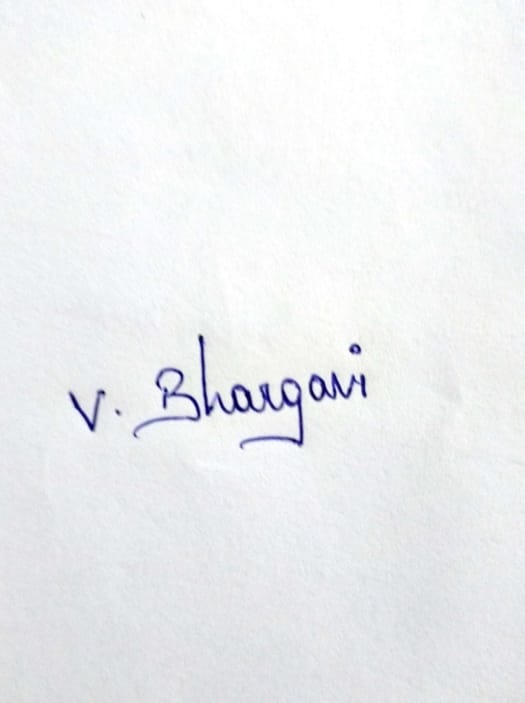 V. Bhargavi